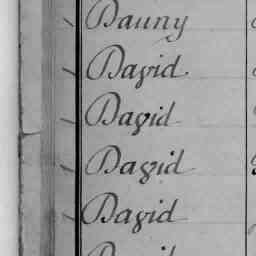 Dauny
David
David
David
David
David